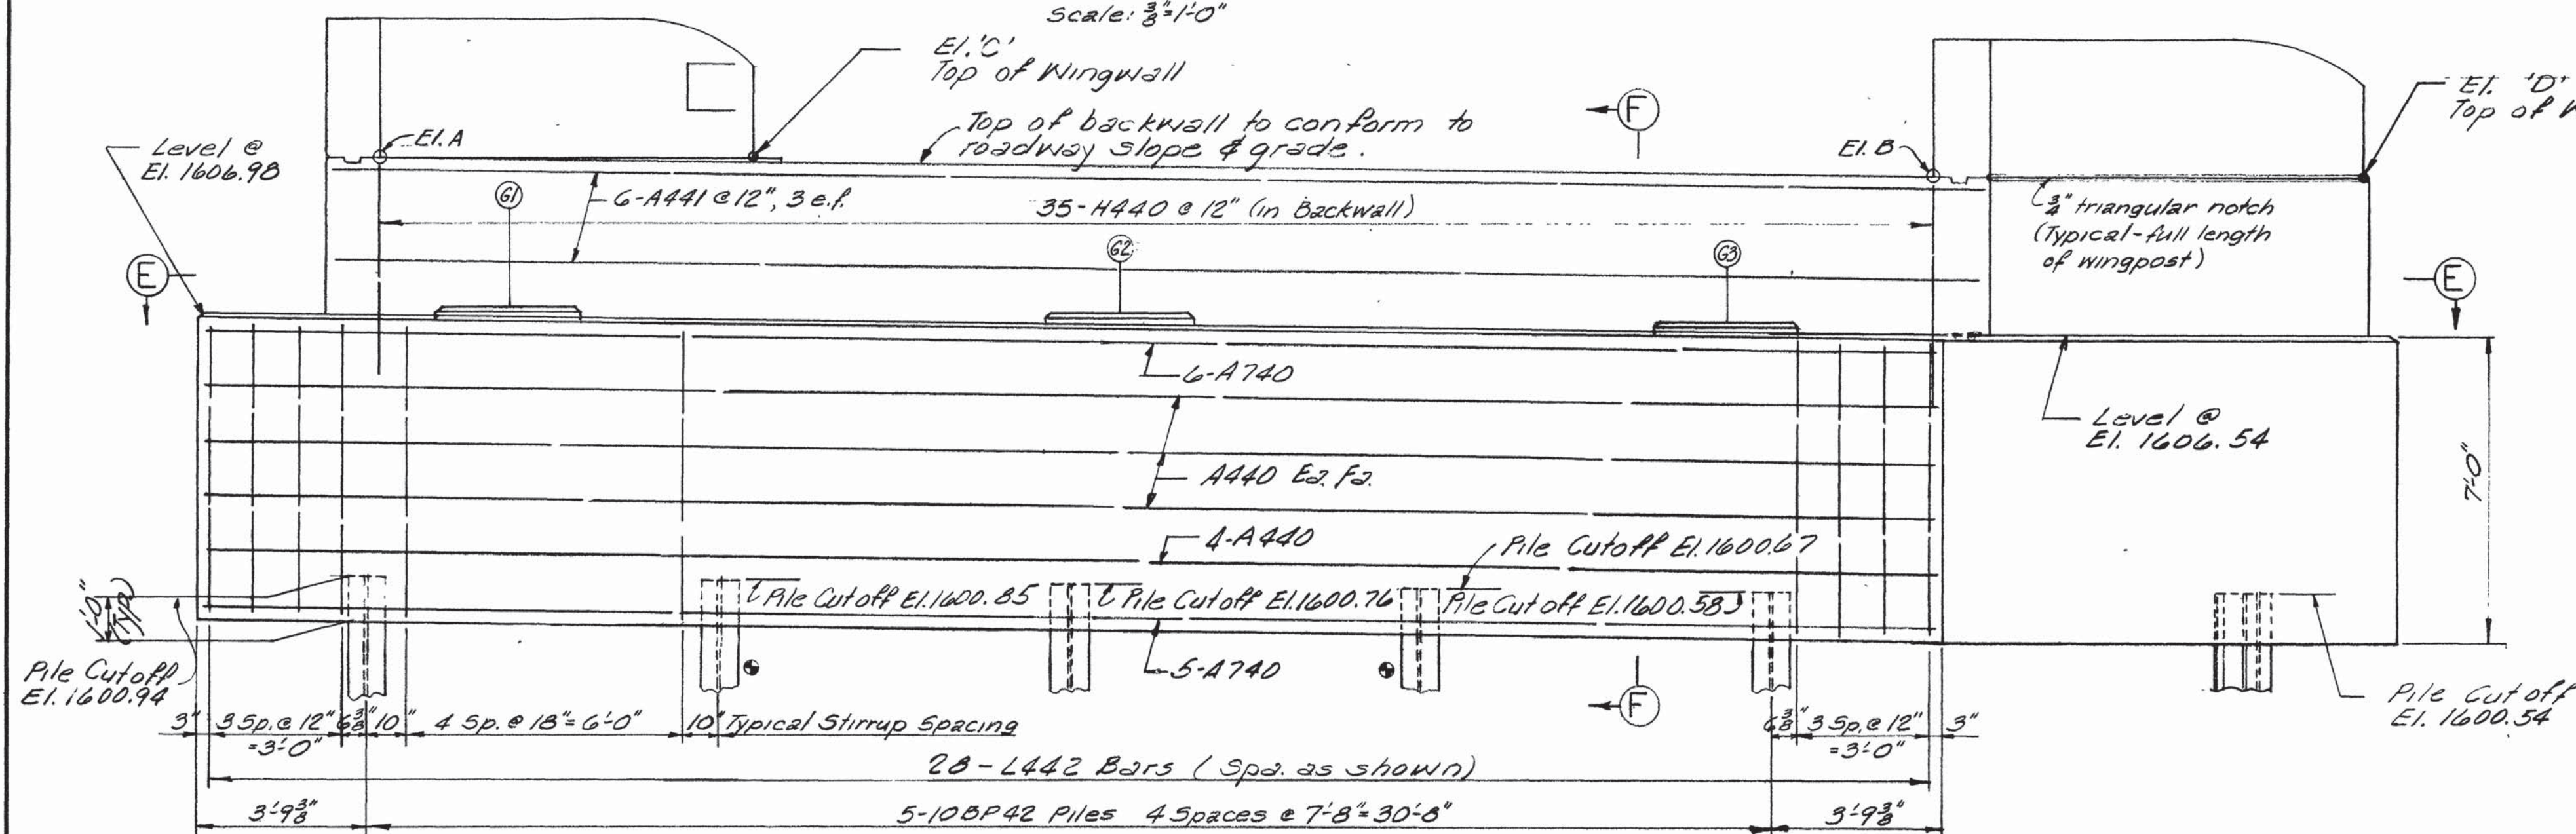 Scale: 3/8"=1'-0"
El. 'C'
Top of Wingwall
El. 'D'
Top of
El. A
Top of backwall to conform to
roadway slope & grade.
F
El. B
Level @
El. 1606.98
G1
6-A441 @ 12", 3 e.f.
35-H440 @ 12" (in Backwall)
3/4" triangular notch
(Typical-full length
of wingpost)
G2
G3
E
E
6-A740
Level @
El. 1606.54
A440 Ea. Fa.
7'-0"
4-A440
Pile Cutoff El. 1600.67
1'-0"
(Typ.)
Pile Cutoff El. 1600.85
Pile Cutoff El. 1600.76
Pile Cutoff El. 1600.58
5-A740
Pile Cutoff
El. 1600.94
F
Pile Cutoff
El. 1600.54
3"
3 Sp. @ 12"
=3'-0"
6 3/8"
10"
4 Sp. @ 18"= 6'-0"
10"
Typical Stirrup Spacing
6 3/8"
3 Sp. @ 12"
=3'-0"
3"
28-L442 Bars (Spa. as shown)
3'-9 3/8"
5-10BP42 Piles 4 Spaces @ 7'-8"=30'-8"
3'-9 3/8"